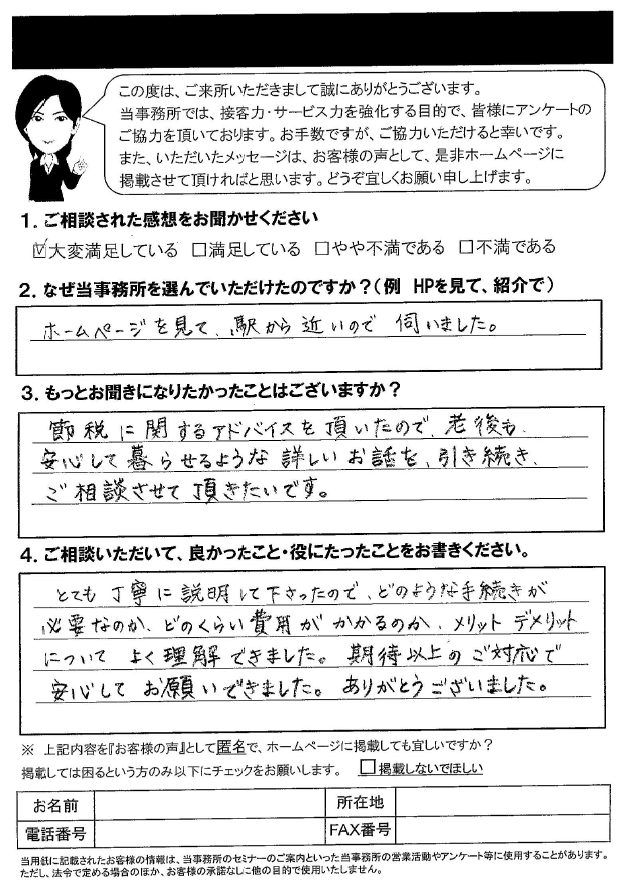 この度は、ご来所いただきまして誠にありがとうございます。
当事務所では、接客力・サービス力を強化する目的で、皆様にアンケートの
ご協力を頂いております。お手数ですが、ご協力いただけると幸いです。
また、いただいたメッセージは、お客様の声として、是非ホームページに
掲載させて頂ければと思います。どうぞ宜しくお願い申し上げます。
1. ご相談された感想をお聞かせください
☑大変満足している □満足している □やや不満である □不満である
2. なぜ当事務所を選んでいただけたのですか？(例 HPを見て、紹介で)
ホームページを見て、駅から近いので 伺いました。
3. もっとお聞きになりたかったことはございますか？
節税に関するアドバイスを頂いたので、老後も
安心して暮らせるような詳しいお話を、引き続き、
ご相談させて頂きたいです。
4. ご相談いただいて、良かったこと・役にたったことをお書きください。
とても丁寧に説明して下さったので、どのような手続きが
必要なのか、どのくらい費用がかかるのか、メリット デメリット
について よく理解できました。期待以上のご対応で
安心して お願いできました。ありがとうございました。
※ 上記内容を『お客様の声』として匿名で、ホームページに掲載しても宜しいですか？
掲載しては困るという方のみ以下にチェックをお願いします。 □掲載しないでほしい
お名前 所在地
電話番号 FAX番号
当用紙に記載されたお客様の情報は、当事務所のセミナーのご案内といった当事務所の営業活動やアンケート等に使用することがあります。
ただし、法令で定める場合のほか、お客様の承諾なしに他の目的で使用いたしません。